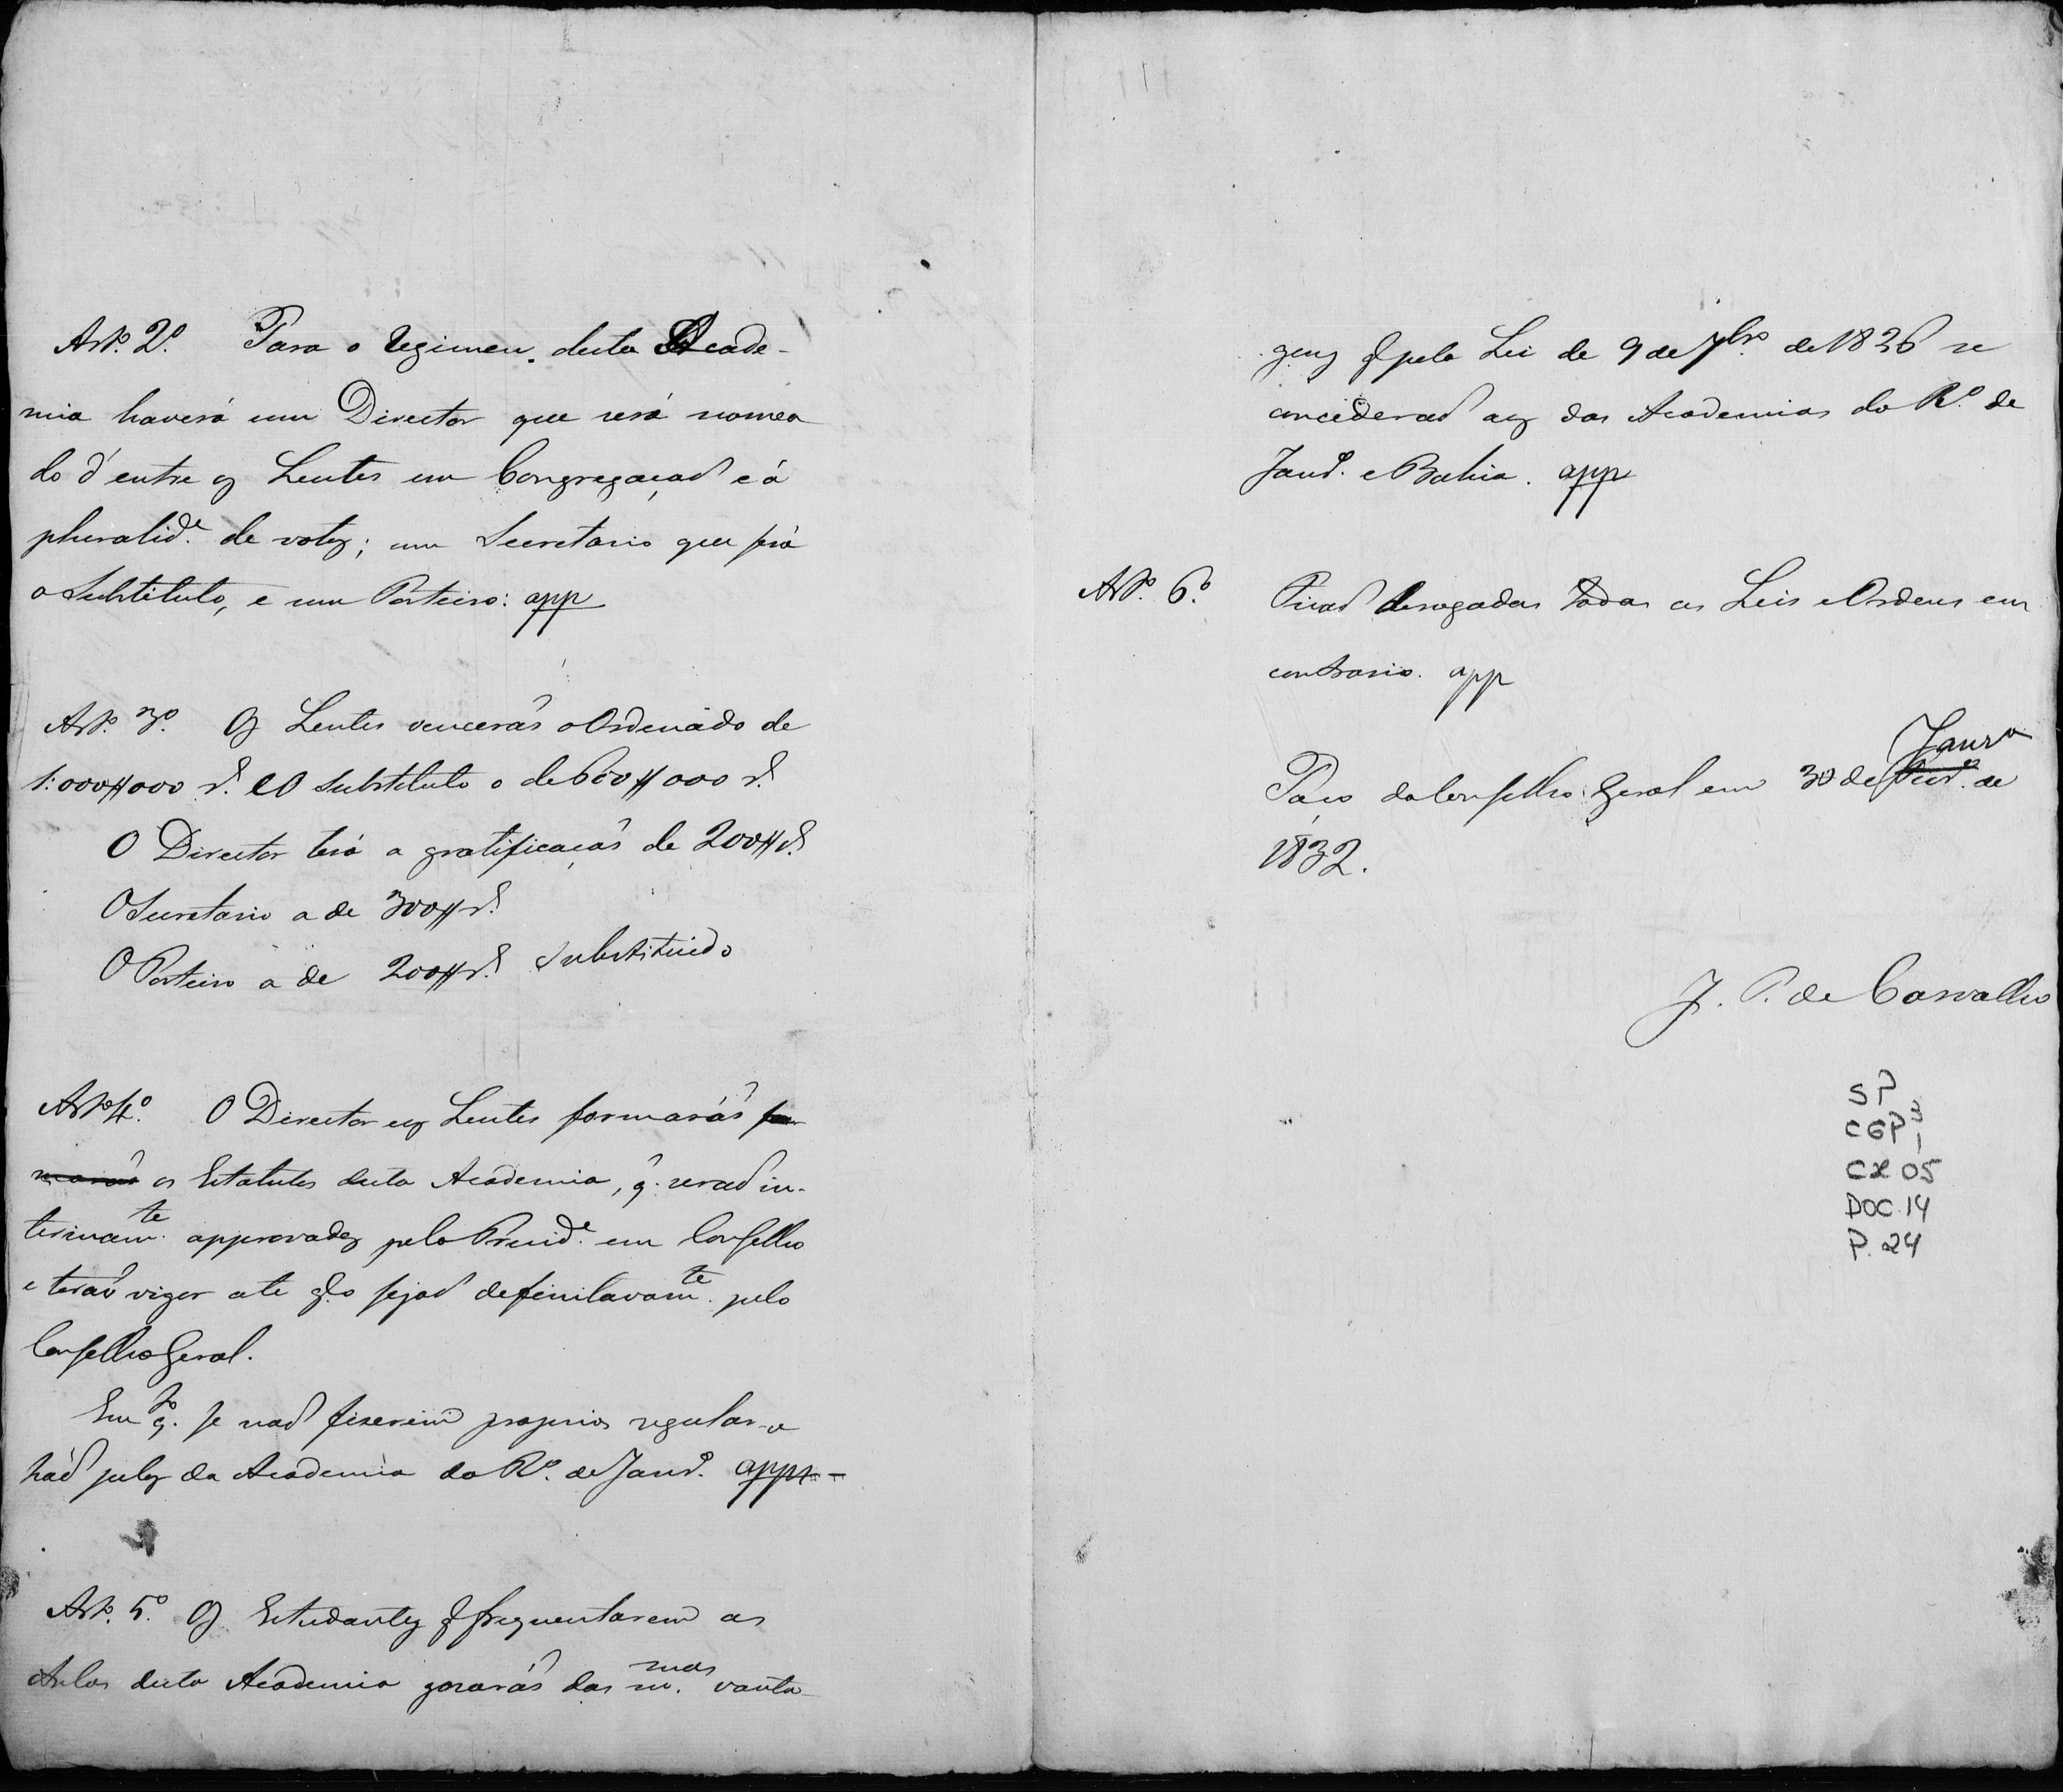 Art.º 2.º Para o regimen desta Acade-
mia haverá um Director que será nomea
do d'entre os Lentes em Congregaçaõ e á
pluralid.e de votos; um Secretario que será
o Substituto, e um Porteiro: app
Art.º 3.º Os Lentes venceráõ o Ordenado de
1:000$000 r.s e O Substituto o de 600$000 r.s
O Director terá a gratificaçaõ de 200$ r.s
O Secretario a de 300$ r.s
O Porteiro a de 200$ r.s Substituido
Art.º 4.º O Director e os Lentes formaráõ for
maráõ os Estatutos desta Academia, q. seraõ in-
terinam.te approvados pelo Presid.e em Conselho
e teráõ vigor ate q. o sejaõ definitavam.te pelo
Conselho Geral.
Em q.to se naõ fizerem proprios regular-se
háõ pelos da Academia do R.º de Janr.º app -
Art.º 5.º Os Estudantes q. frequentarem as
Aulas desta Academia gozaráõ das m.mas vanta-
gens q. pela Lei de 9 de 7br.º de 1826 se
concederaõ aos das Academias do R.º de
Janr.º e Bahia. app
Art.º 6.º Ficaõ derogadas todas as Leis e Ordens em
contrario. app
Paço do Conselho Geral em 30 de Janr.º de
1832.
J. P. de Carvalho
SP
CGP 3
1
CX 05
DOC. 14
P. 24